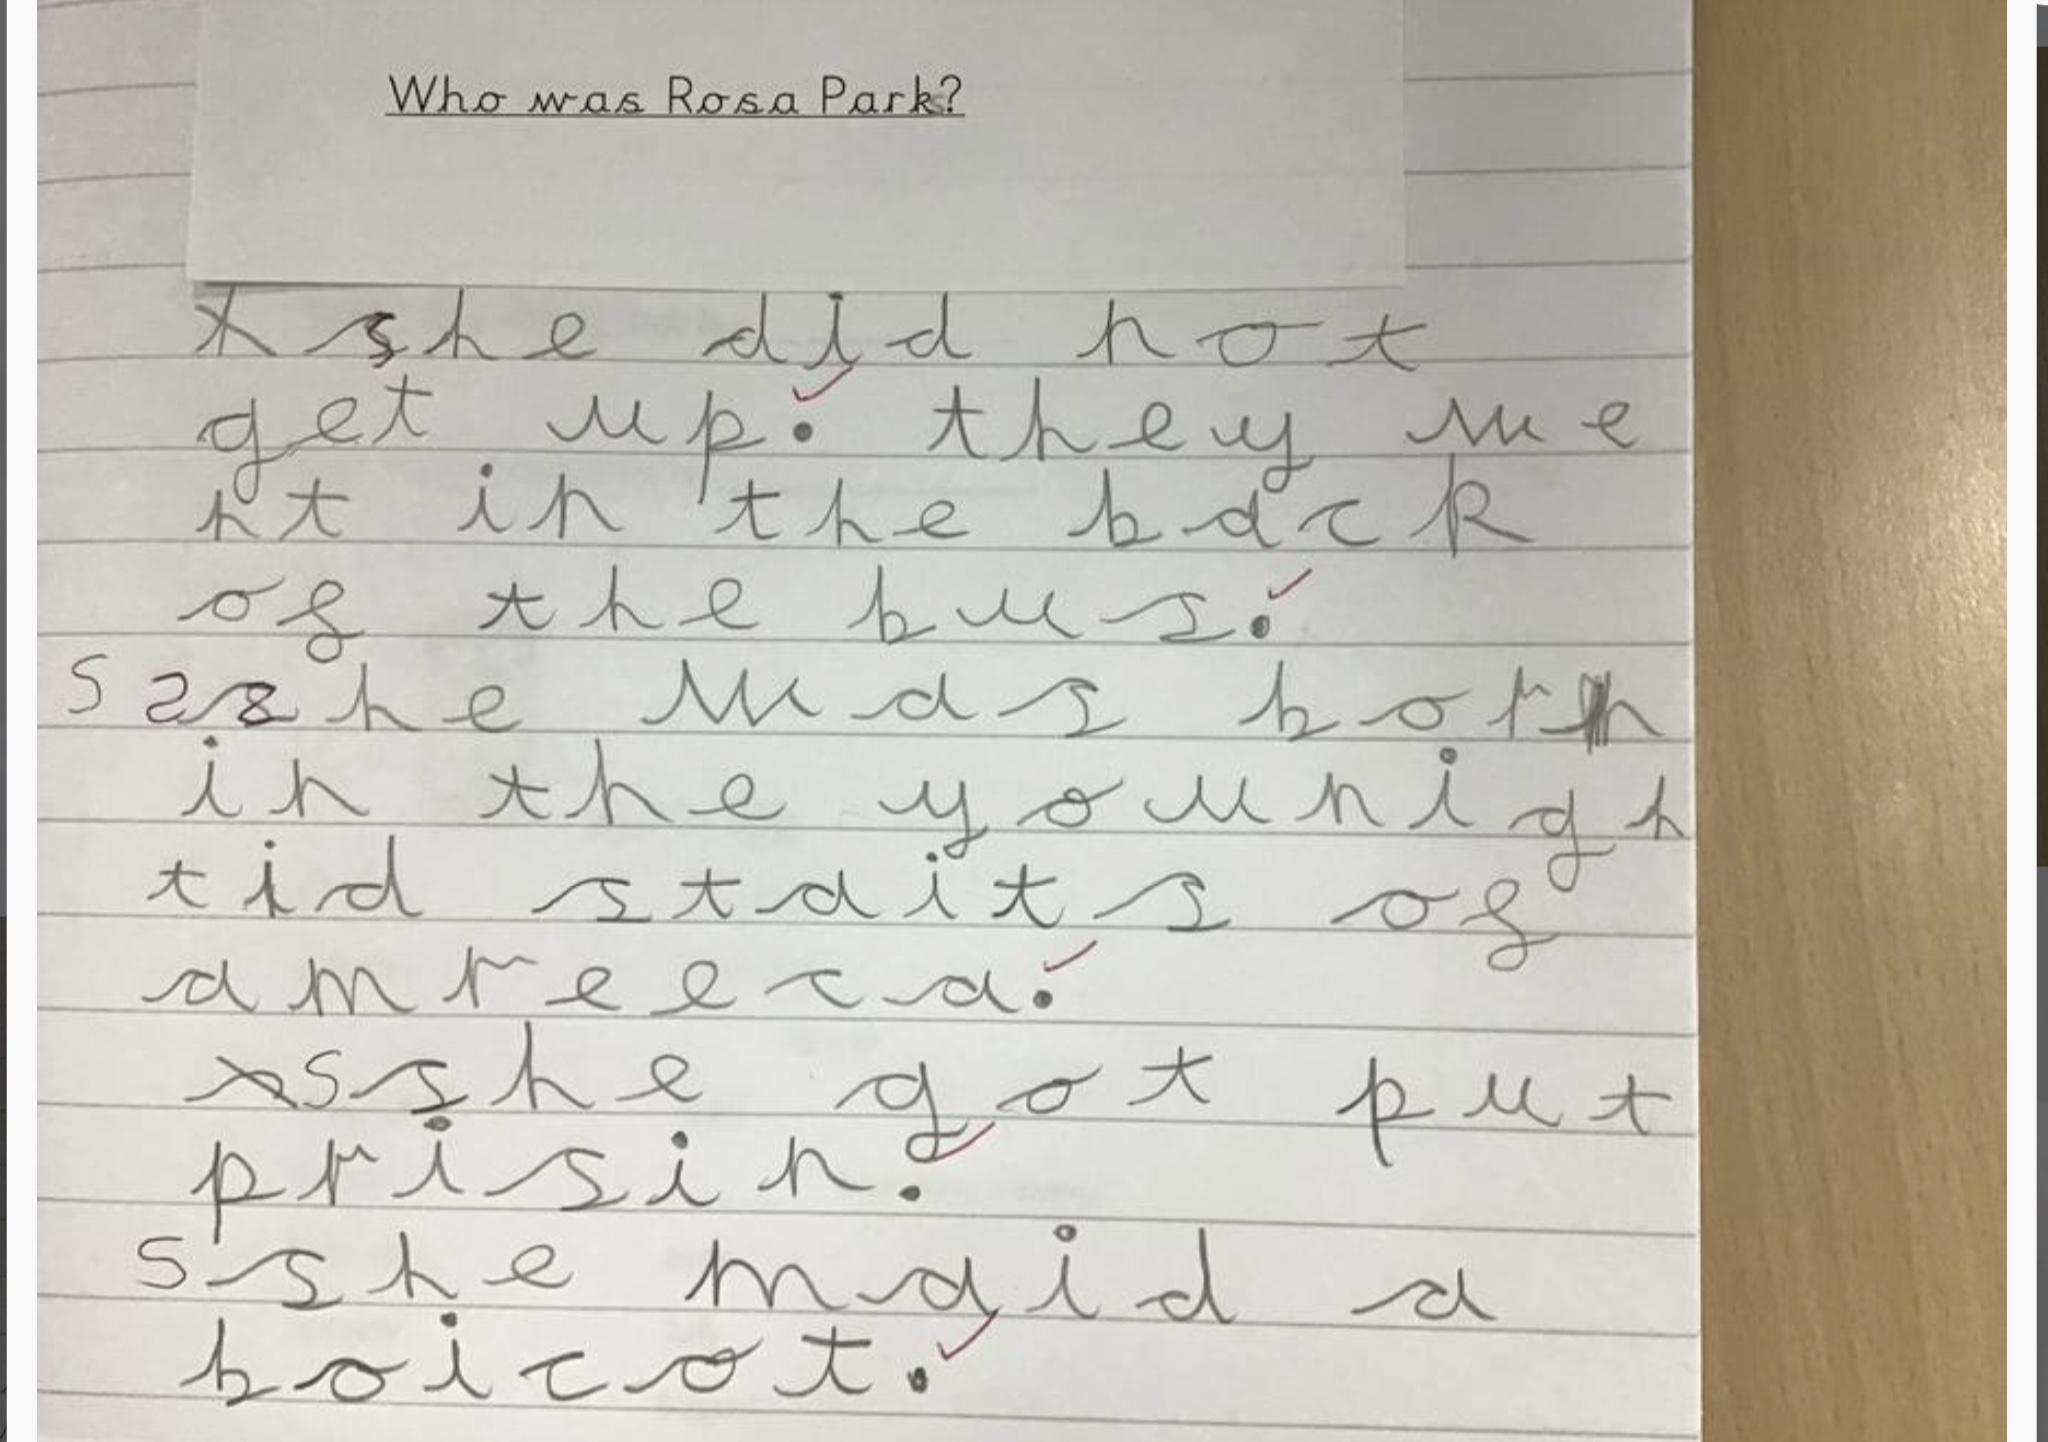 Who was Rosa Park?
she did not
get up. they we
nt in the back
of the bus.
S she was born
in the younigh
tid staits of
amreeca.
S she got put
prisin.
S she maid a
boicot.